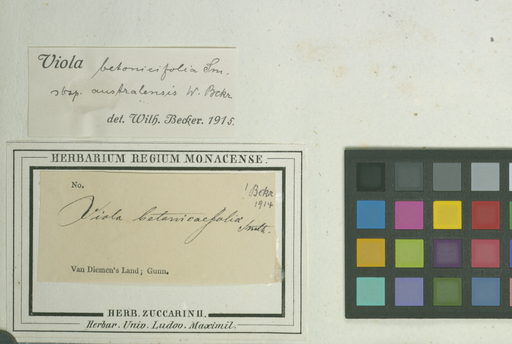 Viola betonicifolia Sm.
sbsp. australensis W. Bckr
det. Wilh. Becker. 1915.
HERBARIUM REGIUM MONACENSE.
No.
! Bckr
1914
Viola betonicaefolia Smith.
Van Diemen's Land; Gunn.
HERB. ZUCCARINII.
Herbar. Univ. Ludov. Maximil.